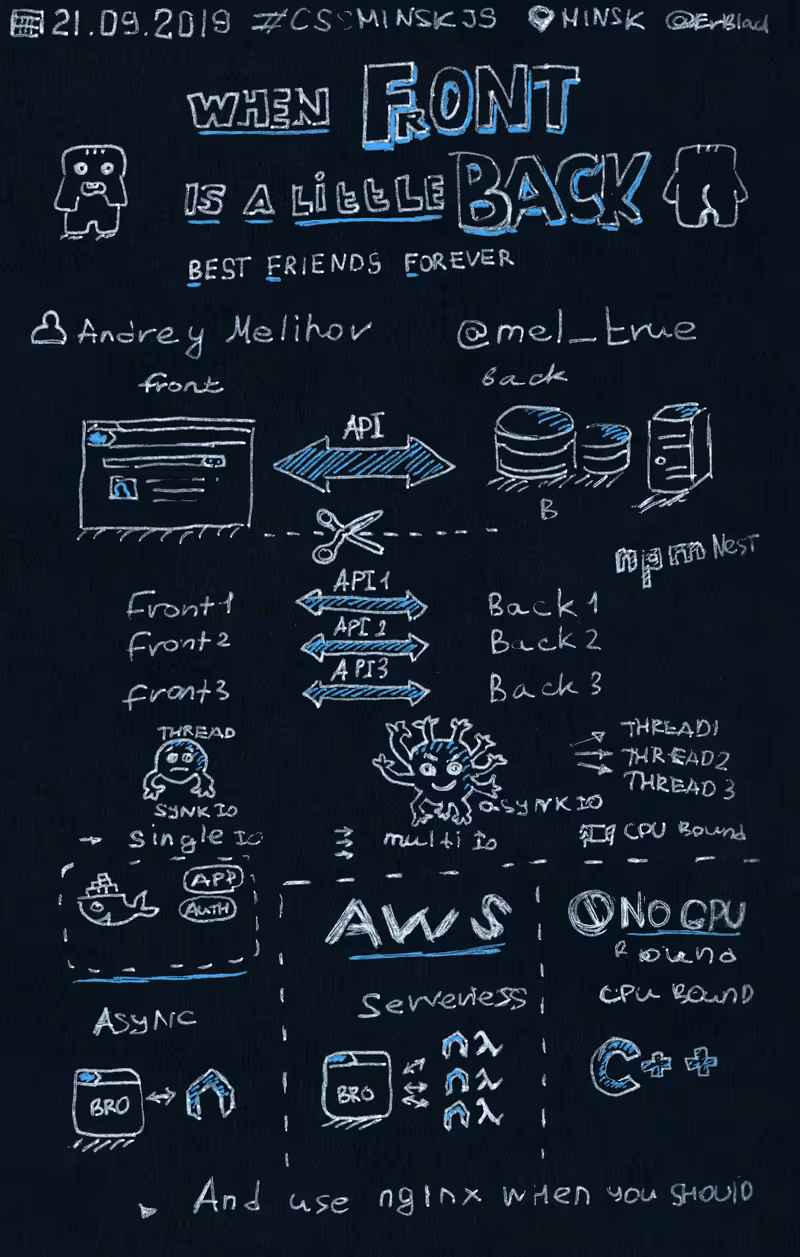 21.09.2019 #CSSMINSKJS MINSK @ErBlack
WHEN FRONT
IS A LITTLE BACK
BEST FRIENDS FOREVER
Andrey Melihov @mel_true
front back
API
B
npm NEST
Front1 API1 Back1
Front2 API2 Back2
front3 API3 Back3
THREAD
THREAD1
THREAD2
THREAD3
SYNK IO
ASYNK IO
single IO
multi Io
CPU Bound
APP
AUTH
AWS
NO GPU
Round
Serverless
CPU BOUND
ASYNC
BRO
BRO
λ
λ
λ
C++
And use nginx when you SHOULD